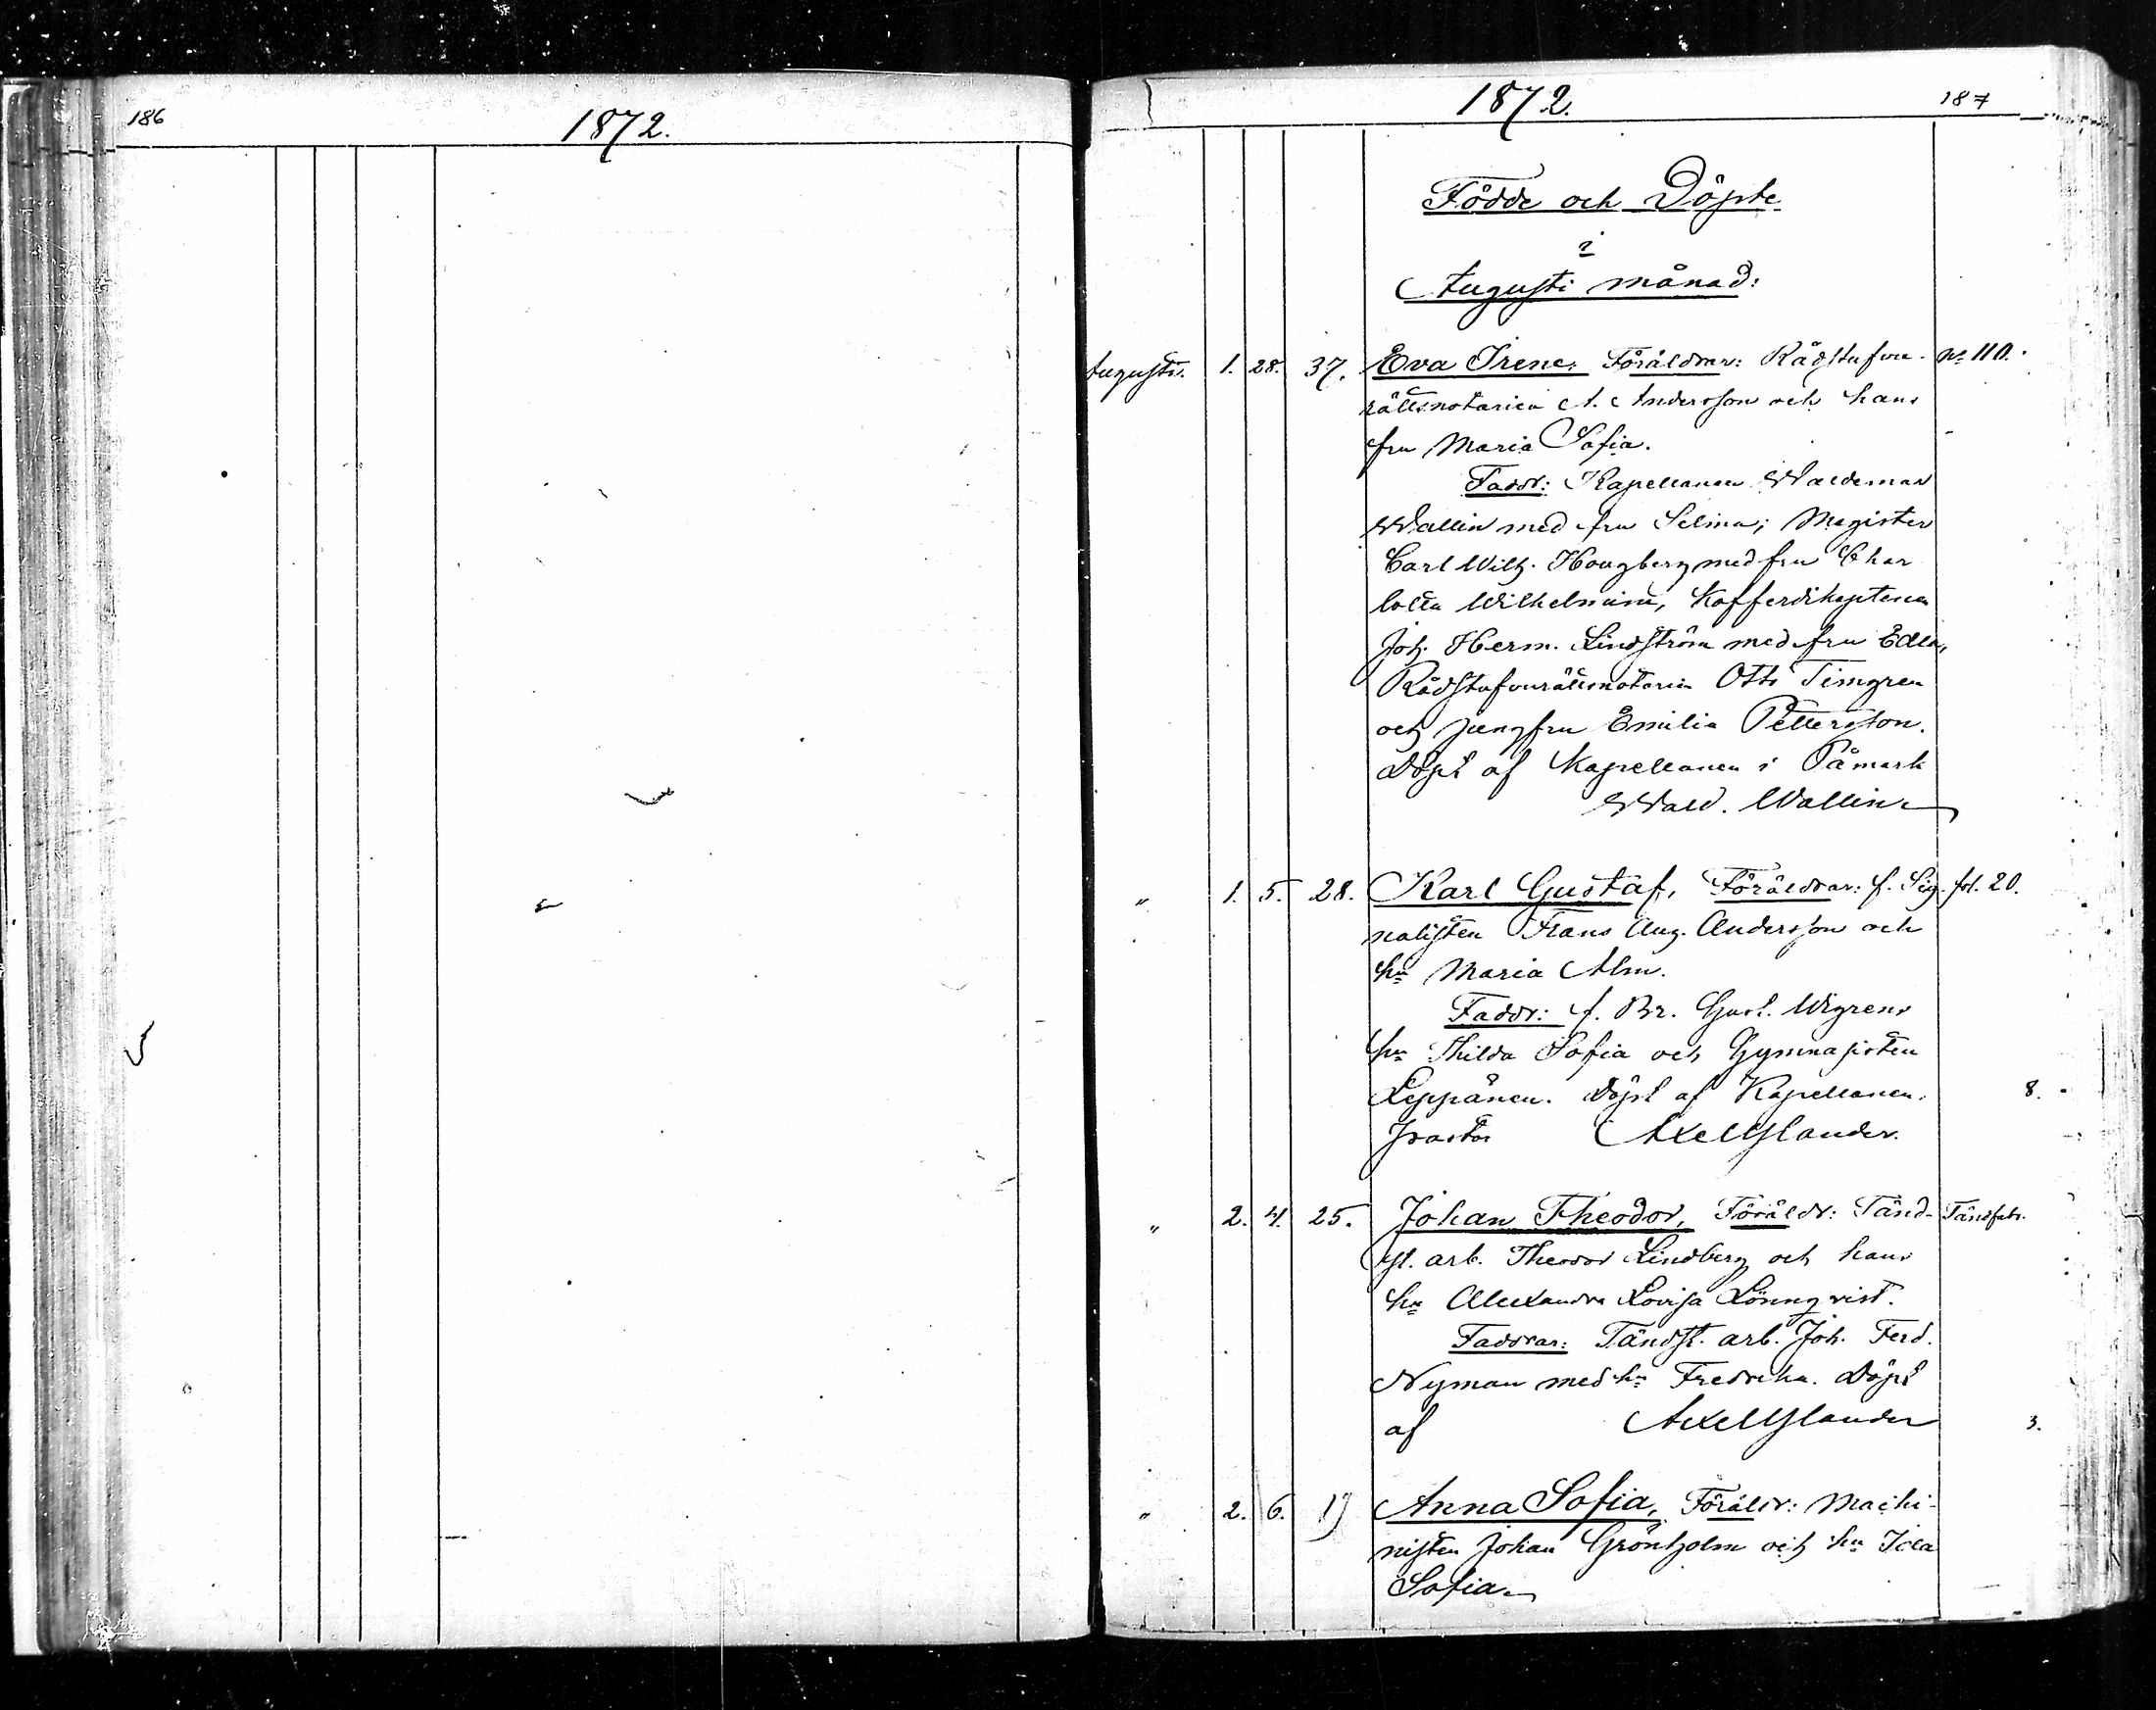 186
1872.
1872.
187
Födde och Döpte
i
Augusti månad:
Augusti. 1. 28. 37. Eva Irene, Föräldrar: Rådstufvu- No 110.
rättsnotarien A. Andersson och hans
fru Maria Sofia.
Faddr: Kapellanen Waldemar
Wallin med fru Selma; Magister
Carl Wilh. Hougberg med fru Char
lotta Wilhelmina, Kofferdikaptenen
Joh. Herm. Lindström med fru Edla,
Rådstufvurättsnotarien Otto Timgren
och jungfru Emilia Pettersson.
Döpt af Kapellanen i Påmark
Wald. Wallin
" 1. 5. 28. Karl Gustaf, Föräldrar: f. Sig- fol. 20.
nalisten Frans Aug. Andersson och
hu Maria Alm.
Faddr: f. Br. Gust. Wigrens
hu Thilda Sofia och Gymnasisten
Leppänen. Döpt af Kapellanen. 8.
Axel Glander.
" 2. 4. 25. Johan Theodor, Föräldr: Tänd- Tändfabr.
st. arb. Theodor Lindberg och hans
hu Alexandra Lovisa Lönnqvist.
Faddrar: Tändst. arb. Joh. Ferd.
Nyman med hu Fredrika. Döpt
af Axel Glander 3.
" 2. 6. Anna Sofia, Föräldr: Machi-
nisten Johan Grönholm och hu Ida
Sofia